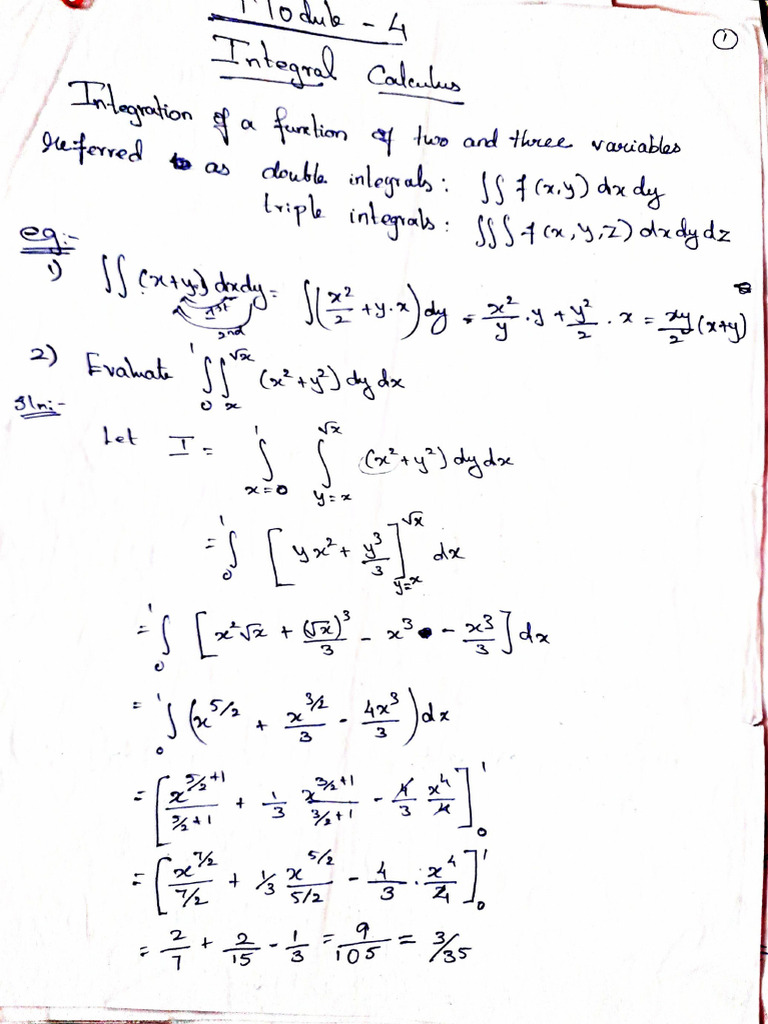 Module - 4
①
Integral Calculus
Integration of a function of two and three variables
referred to as double integrals: ∫∫ f(x,y) dx dy
triple integrals: ∫∫∫ f(x,y,z) dx dy dz
eg:-
1) ∫∫ (x+y) dxdy = ∫(x²/2 + y·x) dy = x²/y · y + y²/2 · x = xy/2 (x+y)
1st
2nd
2) Evaluate ∫₀¹ ∫ₓ^√x (x²+y²) dy dx
Sln:-
Let I = ∫_{x=0}^{1} ∫_{y=x}^{√x} (x²+y²) dy dx
= ∫₀¹ [yx² + y³/3]_{y=x}^{√x} dx
= ∫₀¹ [x²√x + (√x)³/3 - x³ - x³/3] dx
= ∫₀¹ (x^{5/2} + x^{3/2}/3 - 4x³/3) dx
= [x^{5/2+1}/(5/2+1) + 1/3 x^{3/2+1}/(3/2+1) - 4/3 x⁴/4]₀¹
= [x^{7/2}/(7/2) + 1/3 x^{5/2}/(5/2) - 4/3 · x⁴/4]₀¹
= 2/7 + 2/15 - 1/3 = 9/105 = 3/35